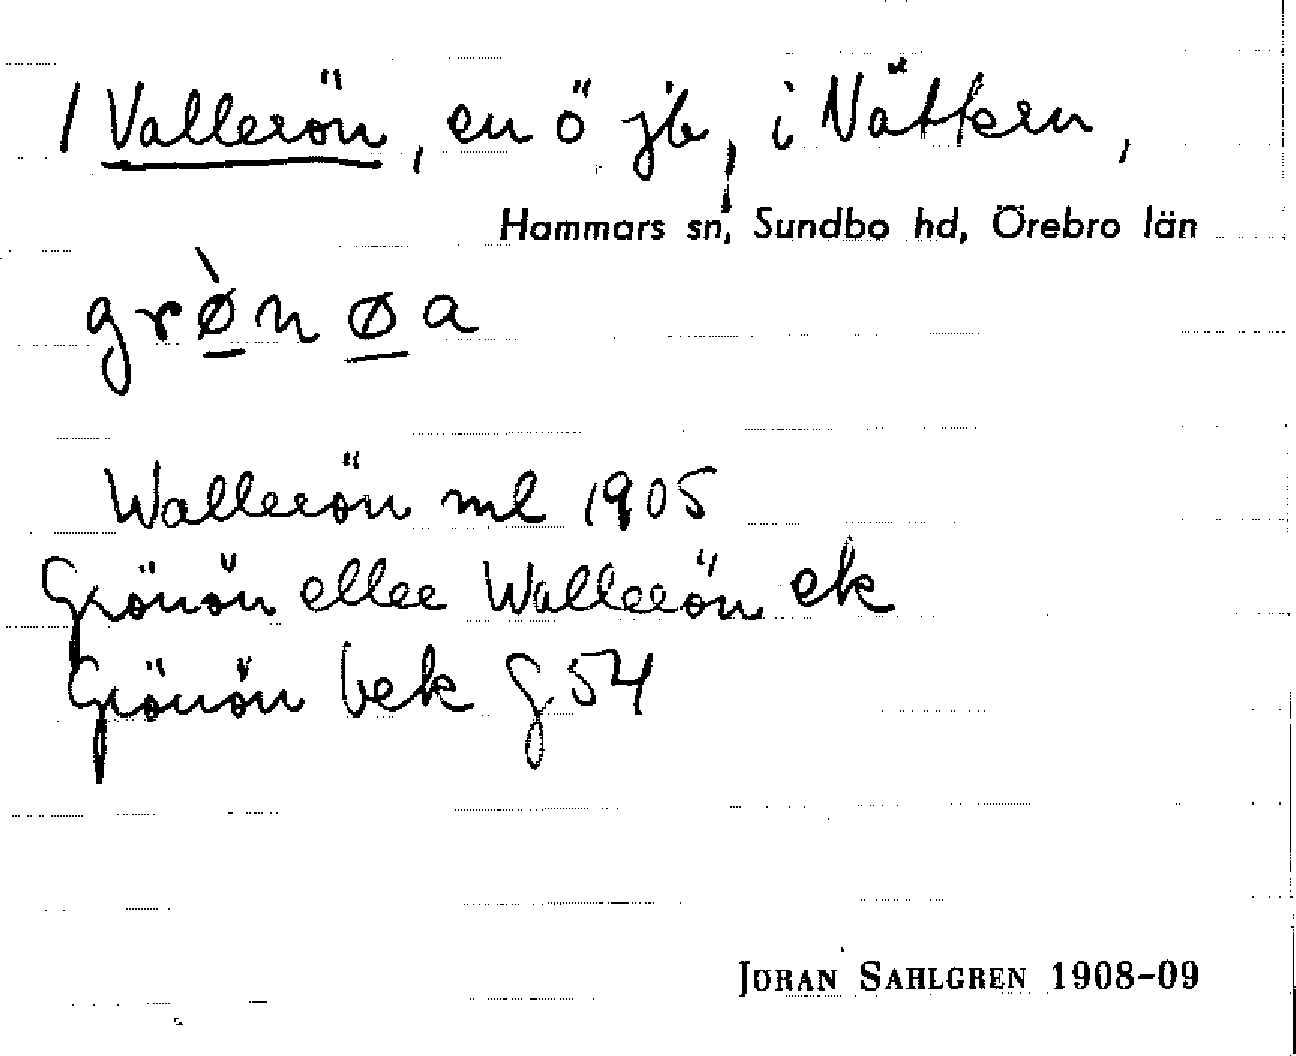 / Vallerön, en ö jb, i Nättern,
Hammars sn, Sundbo hd, Örebro län
grø̀nøa
Wallerön ml 1905
Grönön eller Wallerön ek
Grönön bek g 54
JOHAN SAHLGREN 1908-09